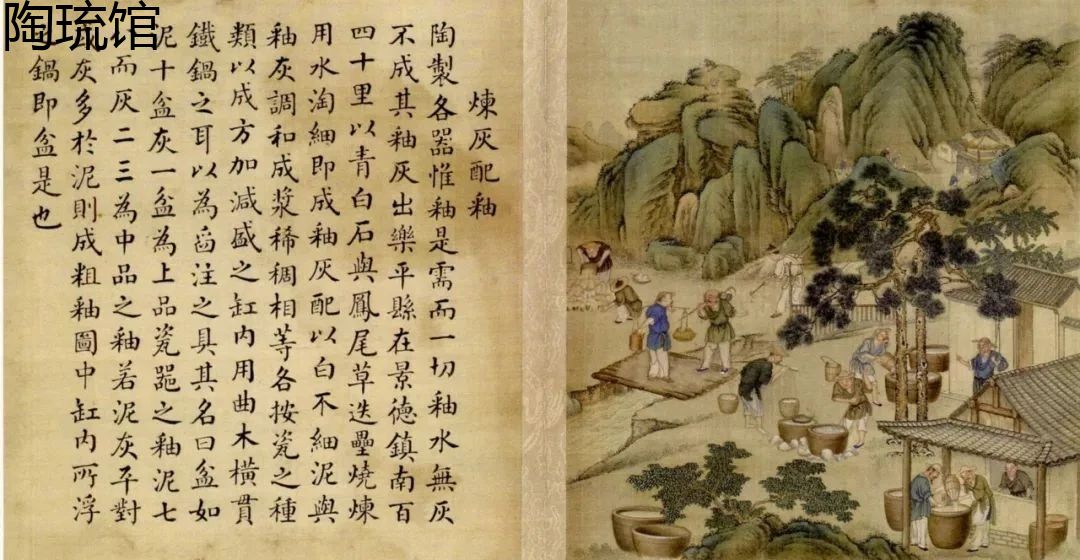 陶琉馆
煉灰配釉
陶製各器惟釉是需而一切釉水無灰
不成其釉灰出樂平縣在景德鎮南百
四十里以青白石與鳳尾草迭壘燒煉
用水淘細即成釉灰配以白不細泥與
釉灰調和成漿稀稠相等各按瓷之種
類以成方加減盛之缸內用曲木橫貫
鐵鍋之耳以為舀注之具其名曰盆如
泥十盆灰一盆為上品瓷噐之釉泥七
而灰二三為中品之釉若泥灰平對
或灰多於泥則成粗釉圖中缸內所浮
鍋即盆是也